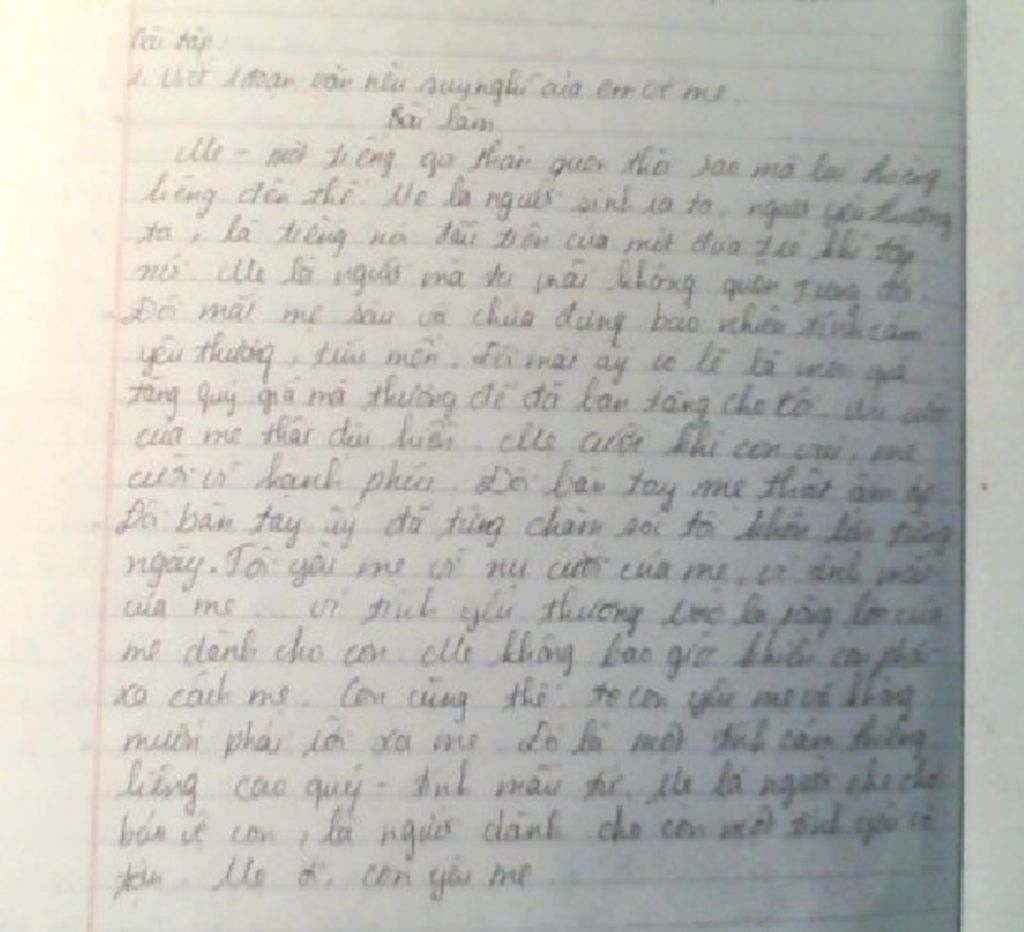 Bài tập
1. Viết 1 đoạn văn nêu suy nghĩ của em về mẹ.
Bài làm
Mẹ - một tiếng gọi thân quen thế sao mà lại thiêng
liêng đến thế. Mẹ là người sinh ra ta, người yêu thương
ta, là tiếng nói đầu tiên của một đứa trẻ khi tập
nói. Mẹ là người mà ta mãi không quên trong đời.
Đôi mắt mẹ sâu và chứa đựng bao nhiêu tình cảm
yêu thương, trìu mến. Đôi mắt ấy có lẽ là món quà
tặng quý giá mà thượng đế đã ban tặng cho tôi. Nụ cười
của mẹ thật dịu hiền. Mẹ cười khi con vui, mẹ
cười vì hạnh phúc. Đôi bàn tay mẹ thật ấm áp
Đôi bàn tay ấy đã từng chăm sóc tôi khôn lớn từng
ngày. Tôi yêu mẹ vì nụ cười của mẹ, vì ánh mắt
của mẹ... vì tình yêu thương bao la rộng lớn của
mẹ dành cho con Mẹ không bao giờ khiến con phải
xa cách mẹ. Con cũng thế. con yêu mẹ và không
muốn phải rời xa mẹ. Đó là một tình cảm thiêng
liêng cao quý - tình mẫu tử. Mẹ là người che chở
bảo vệ con, là người dành cho con một tình yêu vô
tận. Mẹ ơi, con yêu mẹ